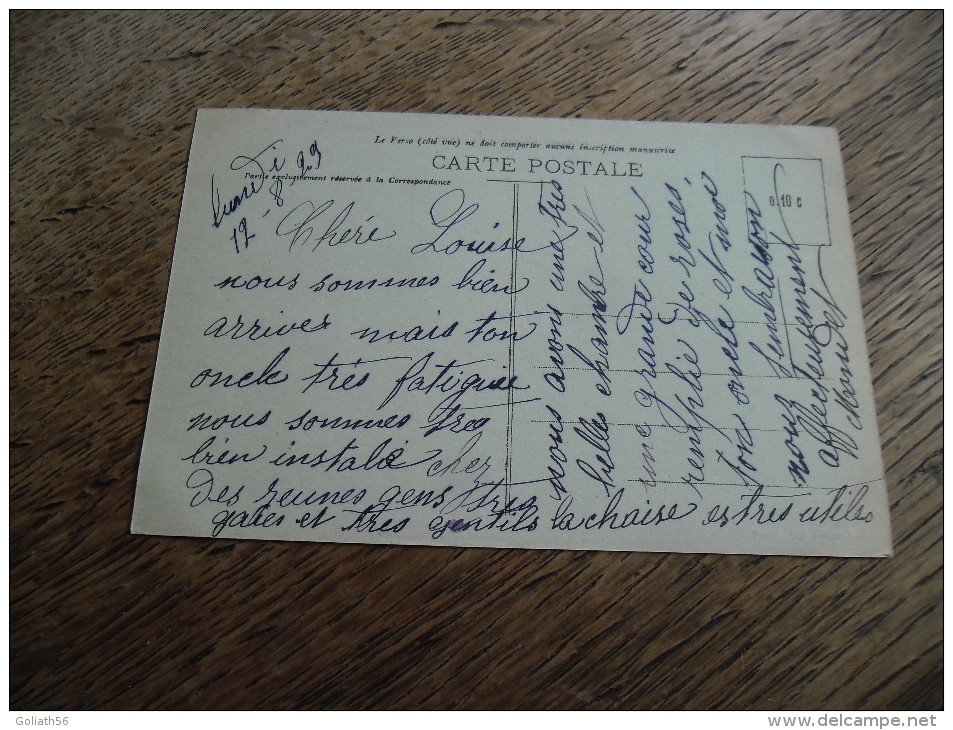 Le Verso (côté vue) ne doit comporter aucune inscription manuscrite
CARTE POSTALE
Partie exclusivement réservée à la Correspondance
0.10 c
Lundi
12-8-29
Chéré Louise
nous sommes bien
arriver mais ton
oncle très fatiguée
nous sommes tres
bien instalié chez
des jeunes gens tres
gaies et très gentils la chaise es tres utiles
nous avons une tres
belles chambre et
une grande cour
remplie de roses.
ton oncle et moi
nous
affectueusement
Goliath56
www.delcampe.net